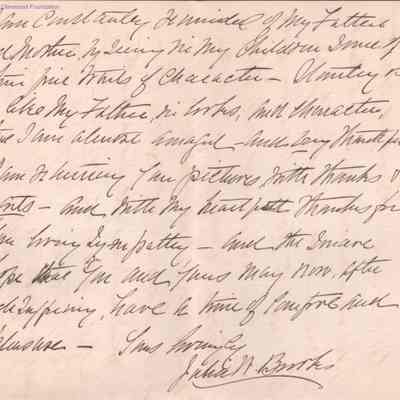 Claremont Foundation
am constantly reminded of My Father
Mother, by seeing in My Children some of
fine traits of Character — Huntley is
like My Father, in looks, and Character,
I am almost amazed — and very thankful
am returning your pictures, with thanks
— and with My heartfelt thanks for
loving sympathy — and the sincere
hope that you and yours may now, after
suffering, have a time of comfort and
pleasure — Yours lovingly
Julia W. Brooks